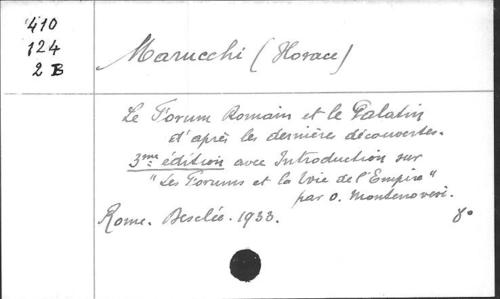 410
124
2 B
Marucchi (Horace)
Le Forum Romain et le Palatin
d'après les dernière découvertes.
3me édition avec Introduction sur
"Les Forums et la Voie de l'Empire"
par O. Montenovesi.
Rome. Desclée. 1933. 8°